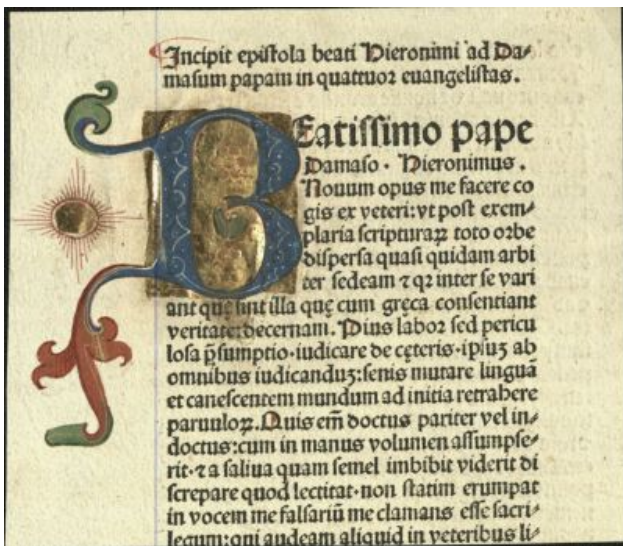 Incipit epistola beati Hieronimi ad Da⸗
masum papam in quattuor euangelistas.
BEatissimo pape
Damaso · Hieronimus .
Nouum opus me facere co
gis ex veteri: vt post exem⸗
plaria scripturaꝝ toto orbe
dispersa quasi quidam arbi
ter sedeam ⁊ qꝛ inter se vari
ant quę sint illa quę cum gręca consentiant
veritate: decernam. Pius labor sed pericu
losa p̄sumptio · iudicare de cęteris · ipsuʒ ab
omnibus iudicanduʒ: senis mutare linguā
et canescentem mundum ad initia retrahere
paruuloꝝ. Quis em̄ doctus pariter vel in⸗
doctus: cum in manus volumen assumpse⸗
rit · ⁊ a saliua quam semel imbibit viderit di
screpare quod lectitat · non statim erumpat
in vocem me falsariū me clamans esse sacri⸗
legum: qui audeam aliquid in veteribus li⸗